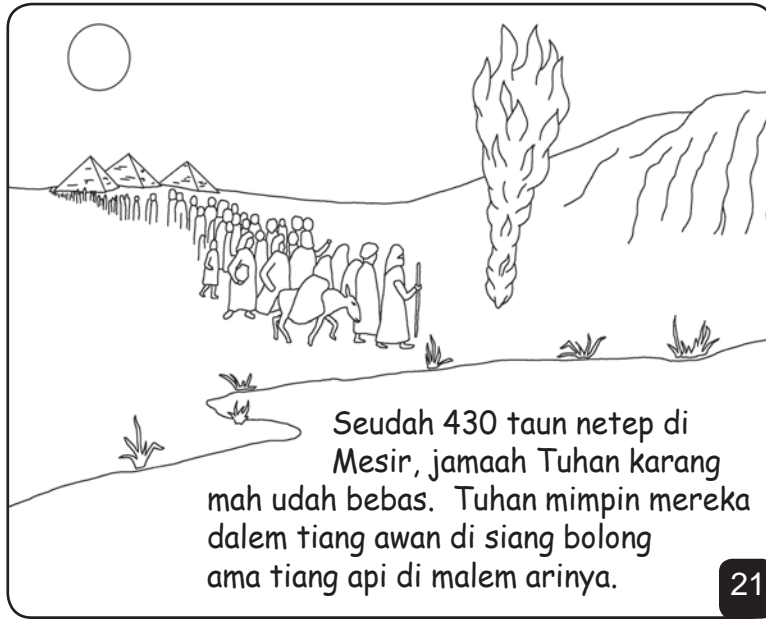 Seudah 430 taun netep di
Mesir, jamaah Tuhan karang
mah udah bebas.  Tuhan mimpin mereka
dalem tiang awan di siang bolong
ama tiang api di malem arinya.
21